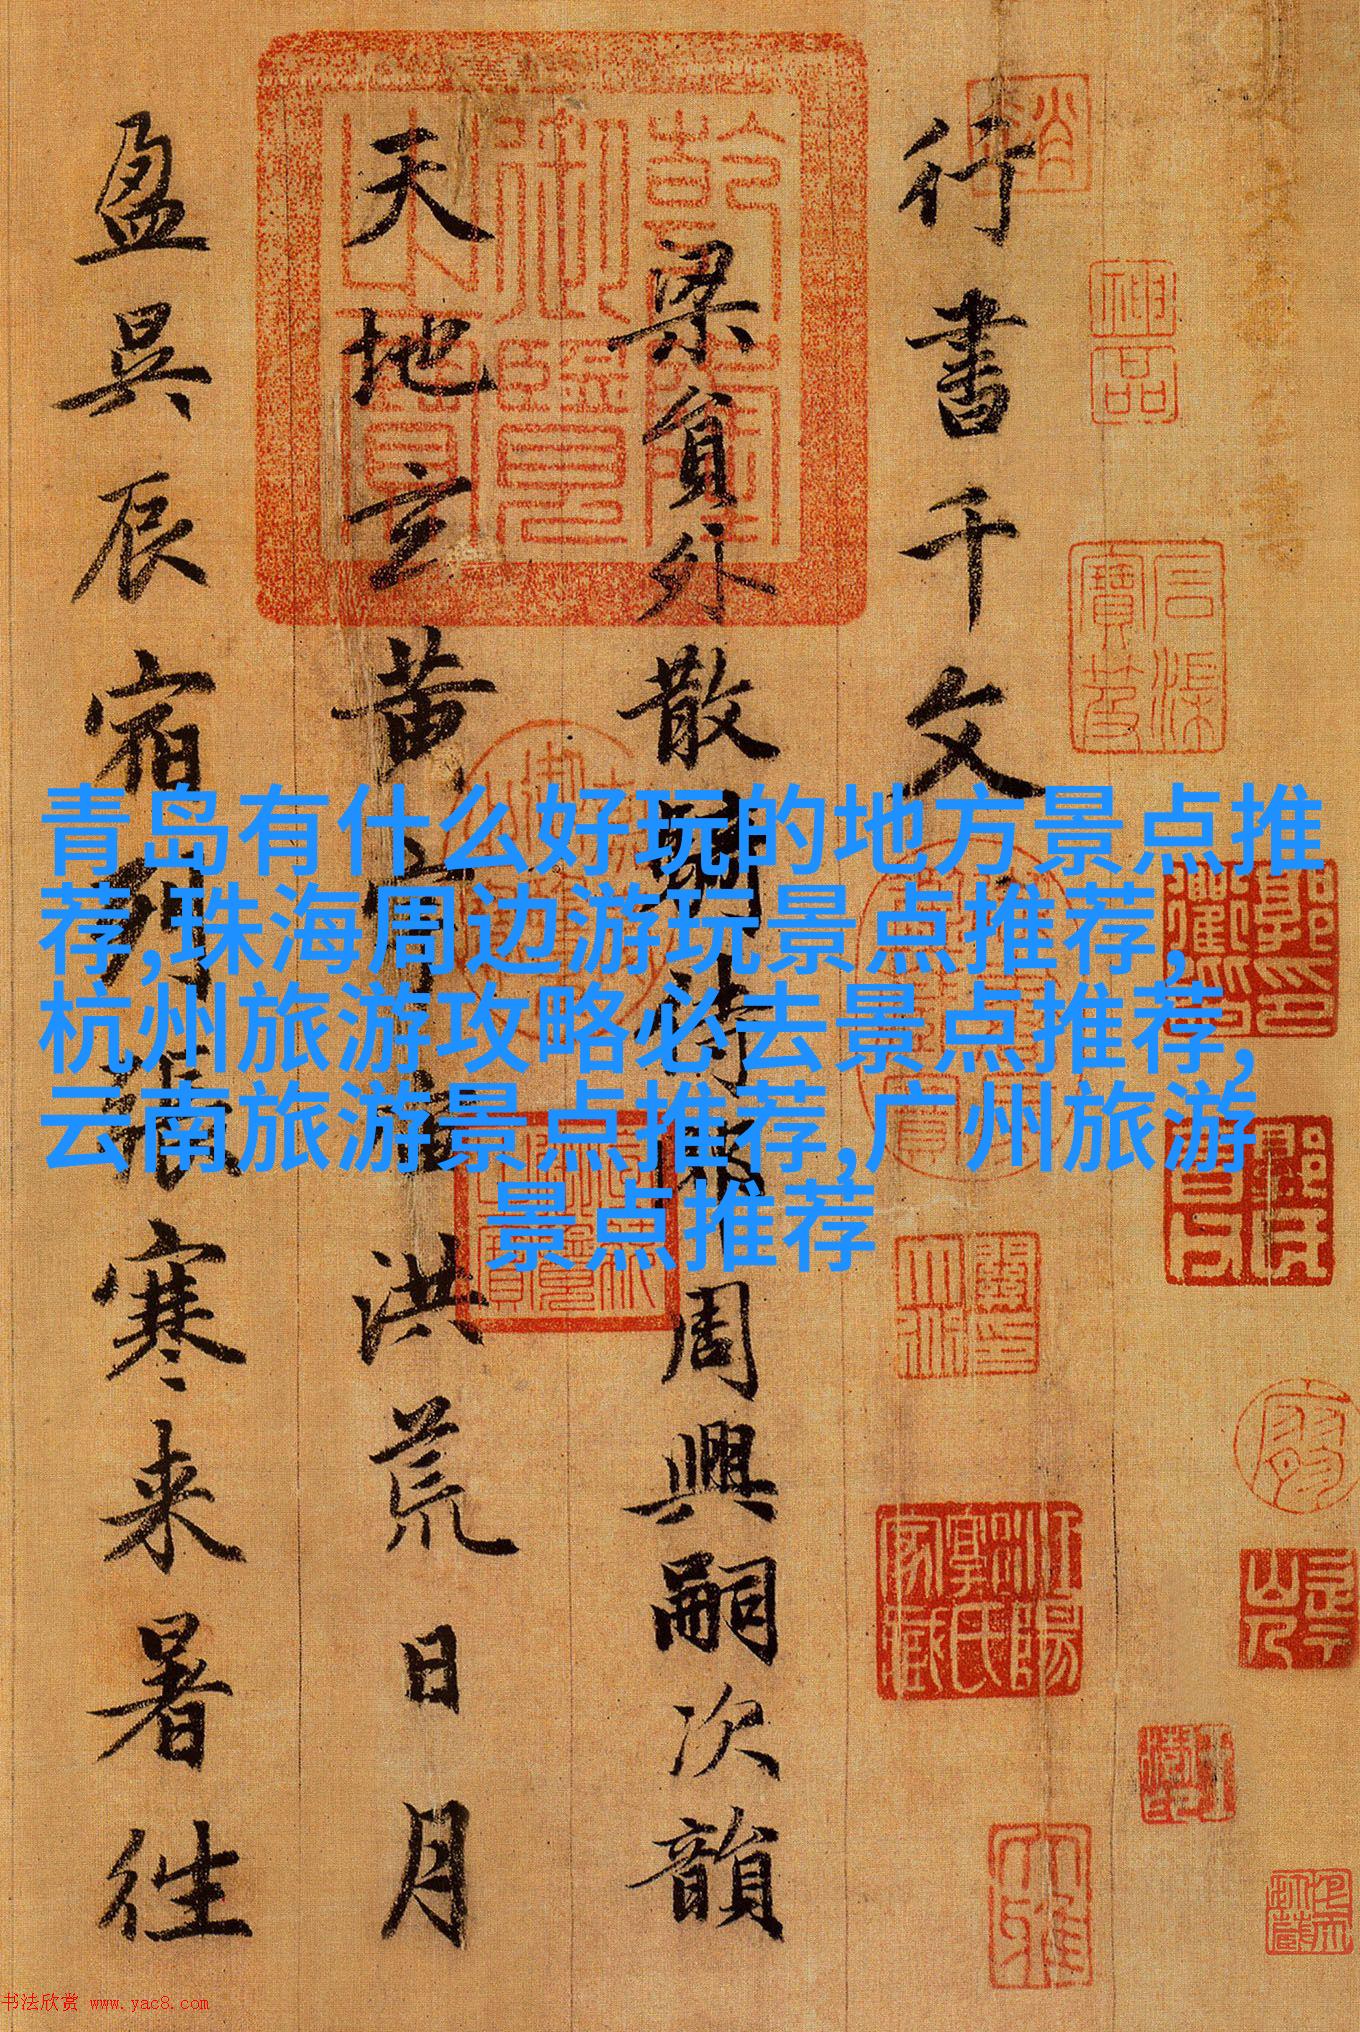 行書千文
梁員外散騎侍郎周興嗣次韻
天地玄黃宇宙洪荒日月
盈昃辰宿列張寒来暑往
青岛有什么好玩的地方景点推
荐,珠海周边游玩景点推荐,
杭州旅游攻略必去景点推荐,
云南旅游景点推荐,广州旅游
景点推荐
乾隆御覽之寶
神品
石渠寶笈
书法欣赏 www.yac8.com